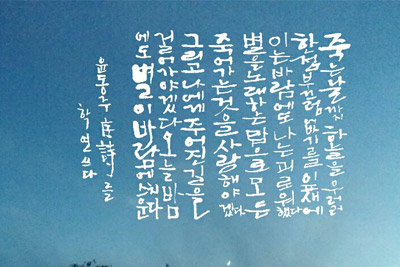 죽는날까지 하늘을 우러러
한점 부끄럼 없기를 잎새에
이는 바람에도 나는 괴로워했다
별을 노래하는 맘으로 모든
죽어가는 것을 사랑해야겠다
그리고 나에게 주어진 길을
걸어가야겠다 오늘 밤
에도 별이 바람에 스치운다
윤동주 序詩를
학연 쓰다